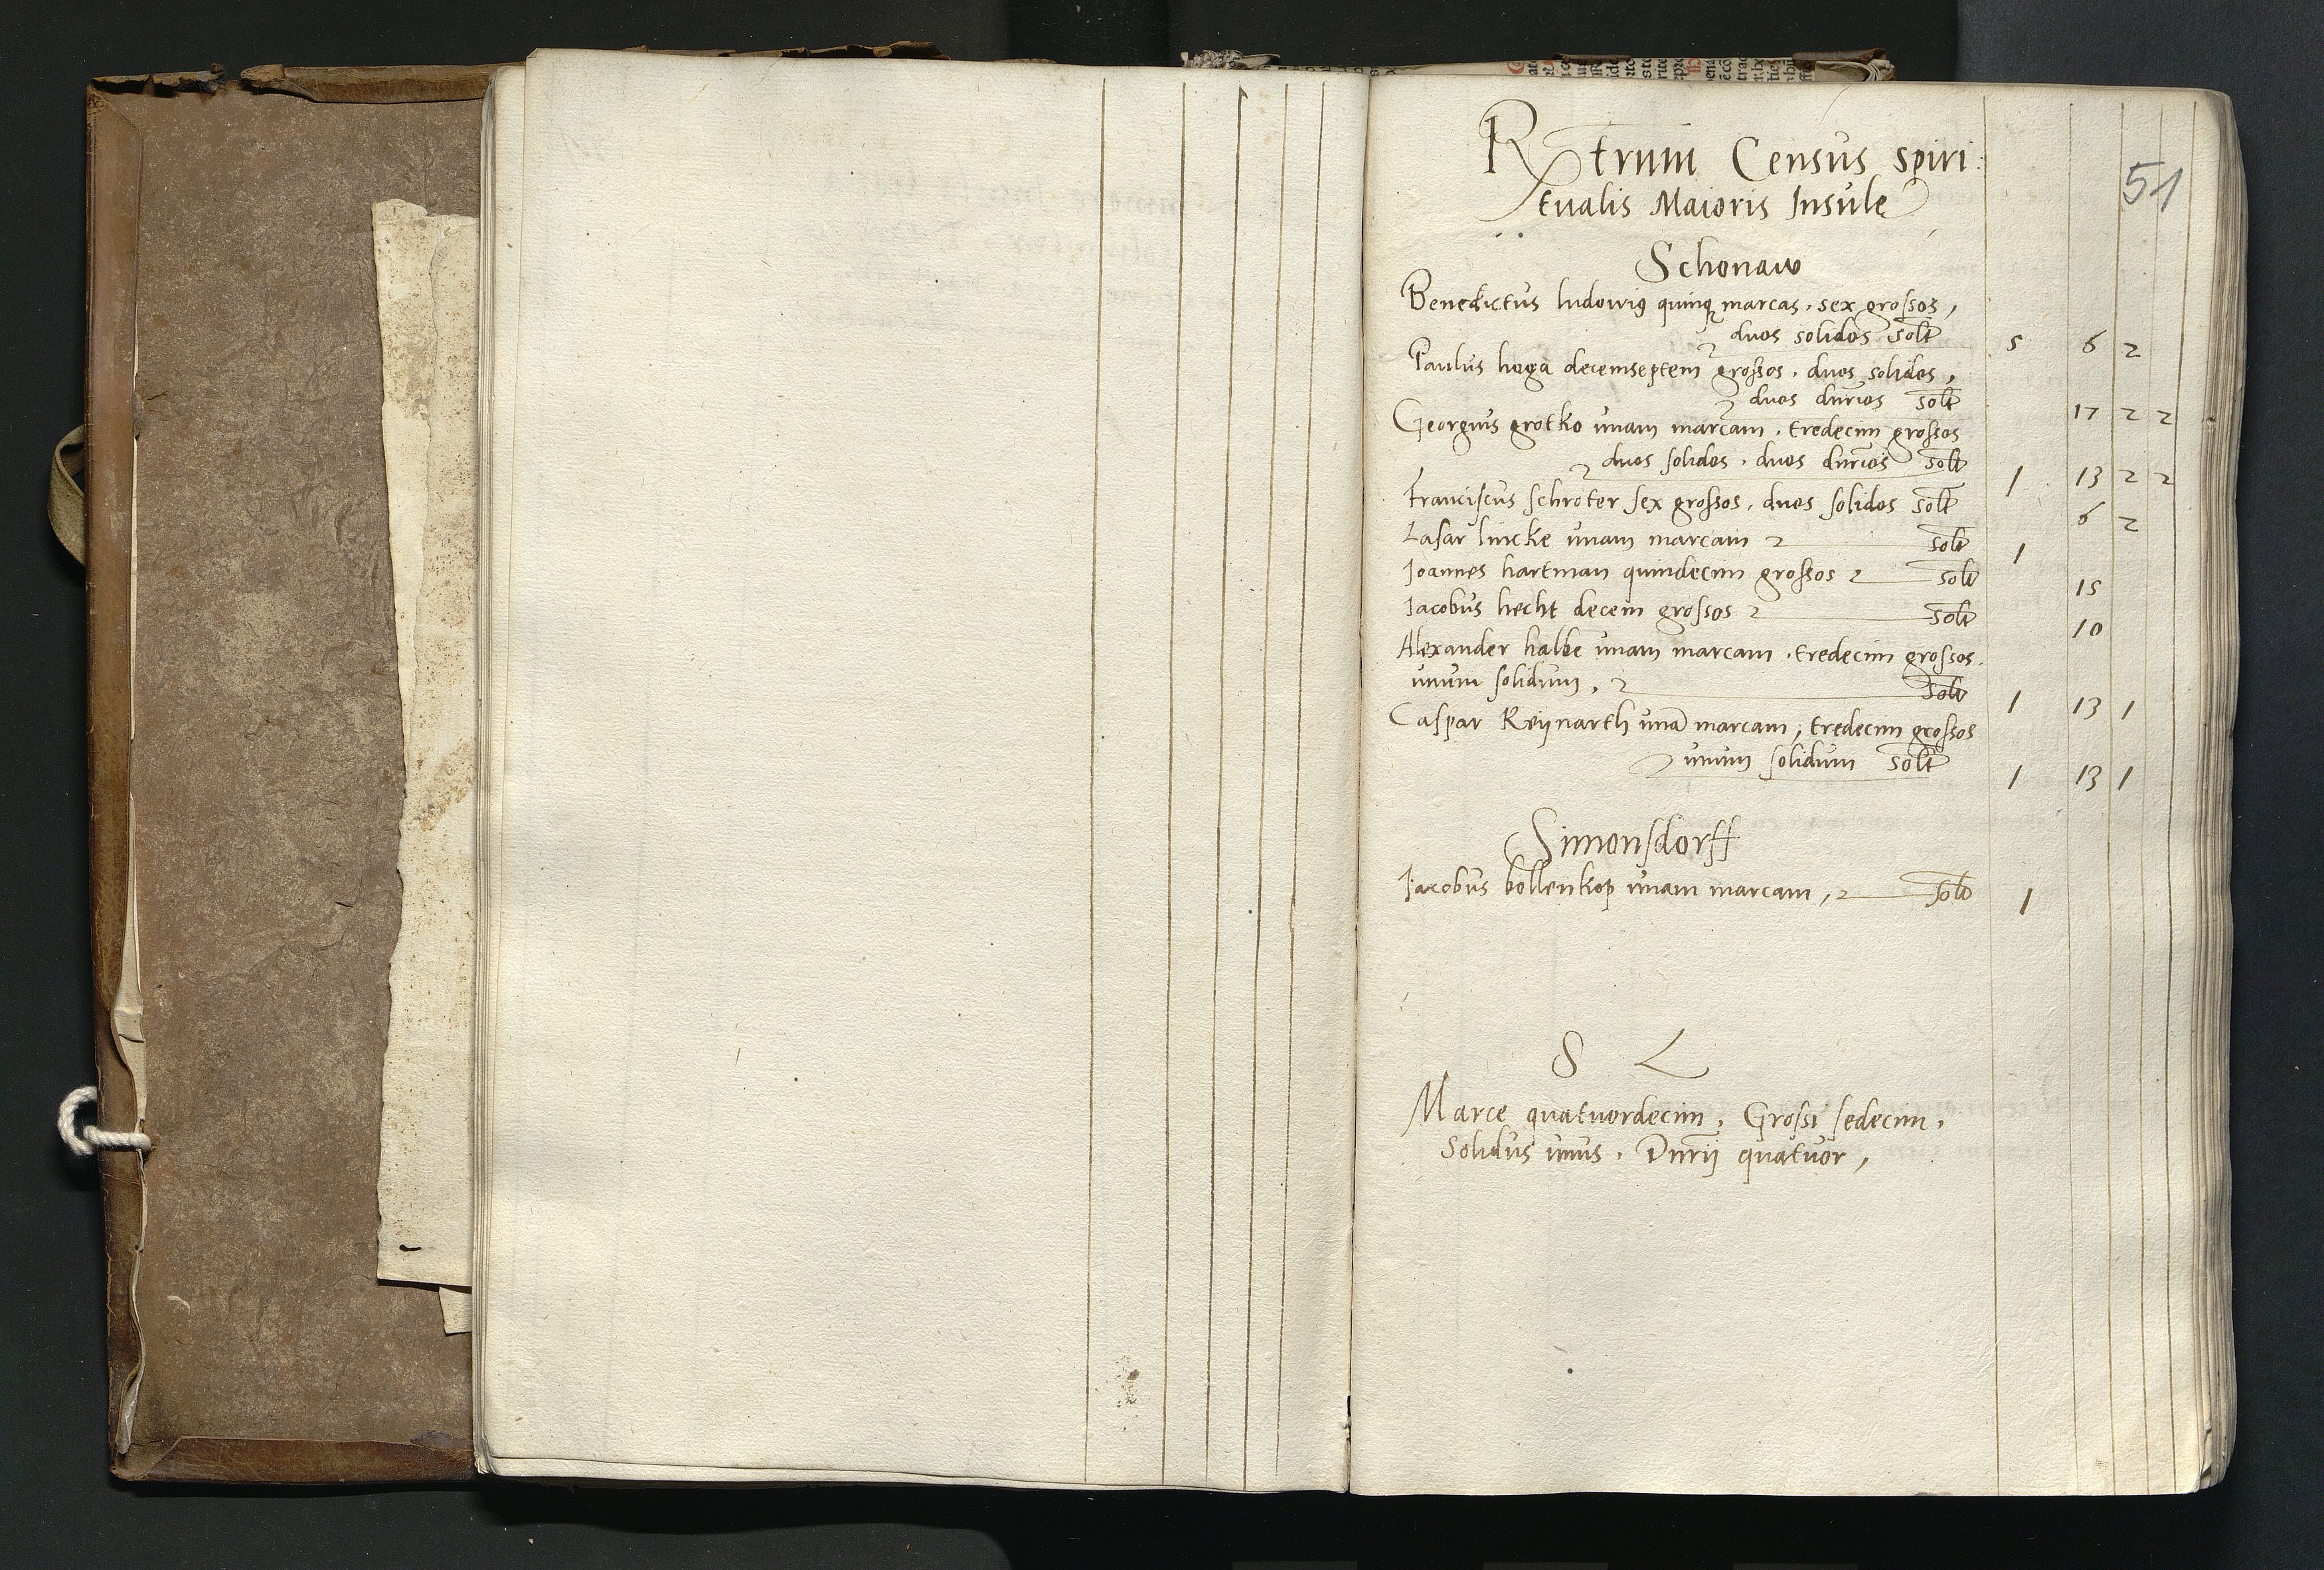 Rtrum Census spiri:
tualis Maioris Insule
51
Schonaw
Benedictus ludowig quinq marcas, sex grossos,
duos solidos solt 5 6 2
Paulus hoga decemseptem grossos, duos solidos,
duos dnrios solt 17 2 2
Georgius grotko unam marcam, tredecim grossos
duos solidos, duos dnrios solt 1 13 2 2
Franciscus schroter sex grossos, duos solidos solt 6 2
Lasar lincke unam marcam solt 1
Joannes hartman quindecim grossos solt 15
Jacobus hecht decem grossos solt 10
Alexander halbe unam marcam, tredecim grossos,
unum solidum, solt 1 13 1
Caspar Reijnarth unā marcam, tredecim grossos
unum solidum solt 1 13 1
Simonsdorff
Jacobus bollenkop unam marcam, solt 1
S L
Marce quatuordecim, Grossi sedecim,
Solidus unus, Dnrij quatuor,